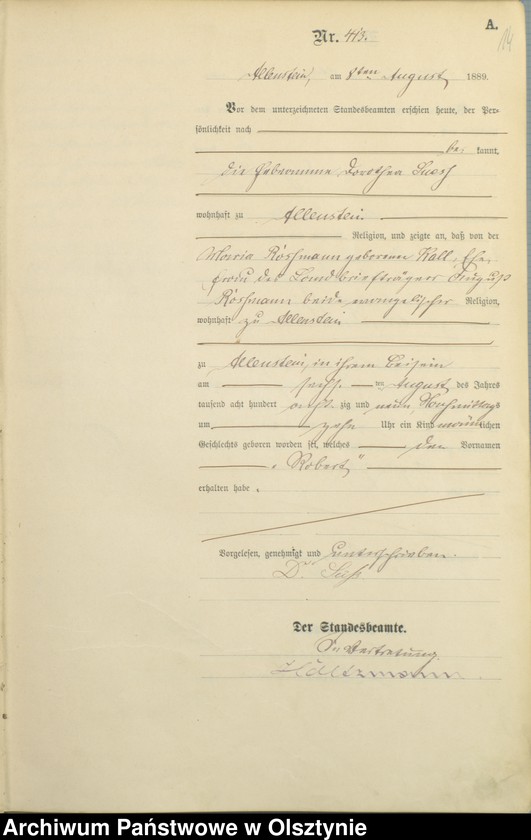 A.
114
Nr. 413.
Allenstein, am 8ten August 1889.
Vor dem unterzeichneten Standesbeamten erschien heute, der Per-
sönlichkeit nach
be kannt,
die Hebamme Dorothea
wohnhaft zu Allenstein
Religion, und zeigte an, daß von der
Maria Röshmann geborenen Kall, Ehe-
frau des Landbriefträgers August
Röshmann beide evangelischer Religion,
wohnhaft zu Allenstein
zu Allenstein, in ihrem Beisein
am sechs ten August des Jahres
tausend acht hundert acht zig und neun, Nachmittags
um zehn Uhr ein Kind männlichen
Geschlechts geboren worden sei, welches den Vornamen
„Robert“
erhalten habe.
Vorgelesen, genehmigt und unterschrieben.
D.
Der Standesbeamte.
In Vertretung.
Holtzmann.
Archiwum Państwowe w Olsztynie